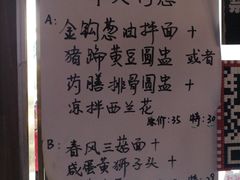 A: 金钩葱油拌面 +
猪蹄黄豆圆盅 或者
药膳排骨圆盅 +
凉拌西兰花
原价:35 特:30
B: 春风三菇面 +
咸蛋黄狮子头 +